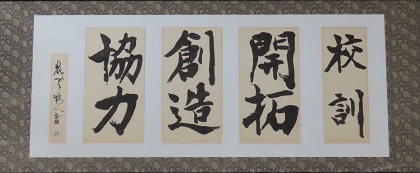 校訓
開拓
創造
協力